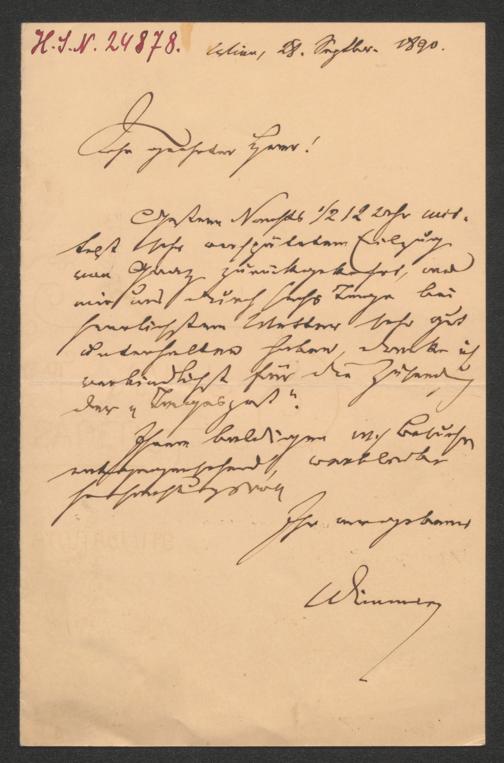 H.I.N. 24878.
Wien, 28. Septber. 1890.
Sehr geehrter Herr!
Gestern Nachts 1/2 12 Uhr mit-
telst sehr verspätetem Eilzug
von Graz zurückgekehrt, wo
wir uns durch sechs Tage bei
herrlichstem Wetter sehr gut
unterhalten haben, danke ich
verbindlichst für die Zusendung
der "Tagespost".
Ihrem baldigen Besuche
entgegensehend, verbleibe
hochachtungsvoll
Ihr ergebener
Wimmer